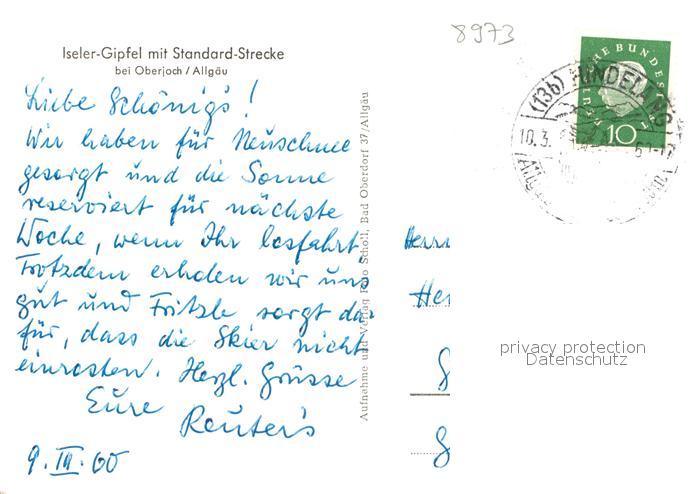 8973
Iseler-Gipfel mit Standard-Strecke
bei Oberjoch/Allgäu
Liebe Schönig's!
Wir haben für Neuschnee
gesorgt und die Sonne
reserviert für nächste
Woche, wenn Ihr losfahrt.
Trotzdem erholen wir uns
gut und Fritzle sorgt da-
für, dass die Skier nicht
einrosten. Herzl. Grüsse
Eure
Reuter's
9.III.60
Aufnahme und Verlag Scholl, Bad Oberdorf 37/Allgäu
DEUTSCHE BUNDESPOST
10
(13b) HINDELANG
10.3.
Herrn
privacy protection
Datenschutz